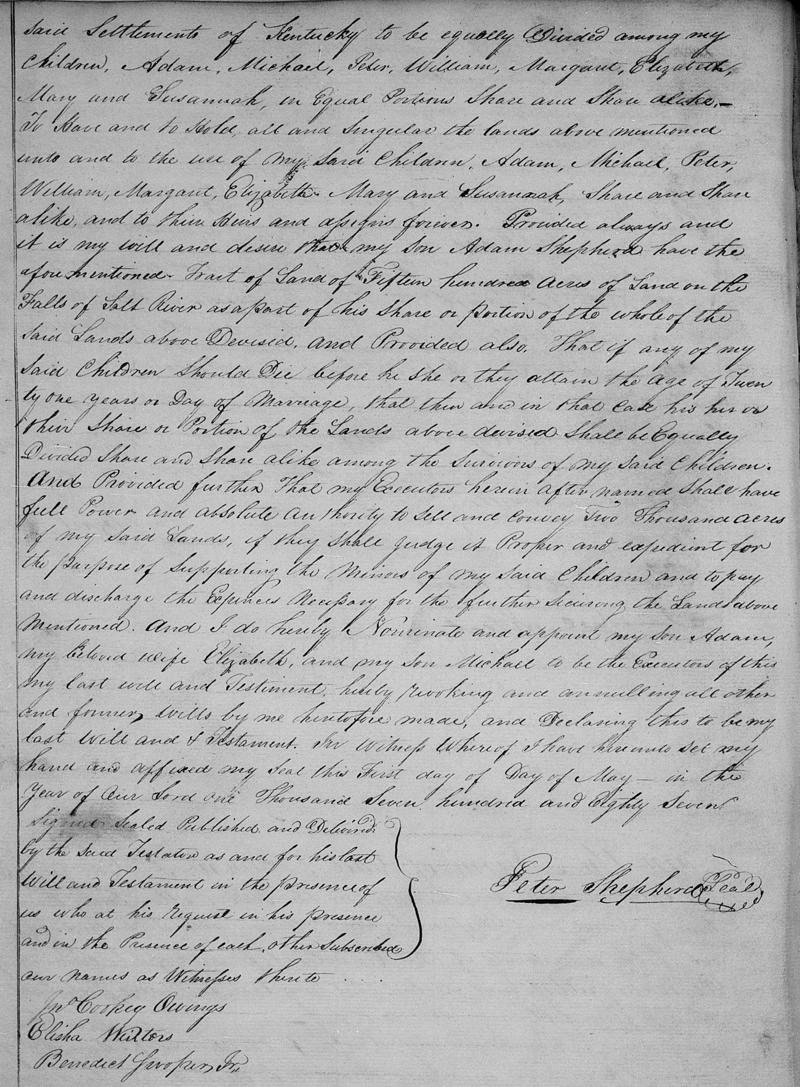 said Settlements of Kentucky to be equally Divided among my
Children, Adam, Michael, Peter, William, Margaret, Elizabeth,
Mary and Susannah, in Equal Portions Share and Share alike,—
To Have and to Hold, all and Singular the lands above mentioned
unto and to the use of my said Children, Adam, Michael, Peter,
William, Margaret, Elizabeth Mary and Susannah, Share and Share
alike, and to their Heirs and assigns forever. Provided always and
it is my will and desire that my Son Adam Shepherd have the
afore mentioned Tract of Land of Fifteen hundred acres of Land on the
Falls of Salt River as a part of his Share or portion of the whole of the
said Lands above Devised, and Provided also, That if any of my
said Children Should Die before he she or they attain the age of Twen
ty one years or Day of Marriage, that then and in that Case his her or
their Share or Portion of the Lands above devised Shall be Equally
Divided Share and Share alike among the Survivors of my said Children.
And Provided further That my Executors herein after named Shall have
full Power and absolute authority to Sell and Convey Two Thousand acres
of my said Lands, if they Shall judge it Proper and expedient for
the purpose of Supporting the Minors of my said Children and to pay
and discharge the Expences Necessary for the further Securing the Lands above
Mentioned. And I do hereby Nominate and appoint my Son Adam,
my beloved wife Elizabeth, and my Son Michael to be the Executors of this
my last will and Testiment, hereby revoking and annulling all other
and former wills by me heretofore made, and Declaring this to be my
last Will and & Testament. In Witness Whereof I have hereunto set my
hand and affixed my Seal this First day of Day of May — in the
Year of Our Lord one Thousand Seven hundred and Eighty Seven
Signed Sealed Published and Delivered
by the said Testator as and for his last
Will and Testament in the presence of
us who at his request in his presence
and in the Presence of each other Subscribed
our names as Witnesses thereto
Peter Shepherd Seal
Jno Cockey Owings
Elisha Walters
Benedict Jr.